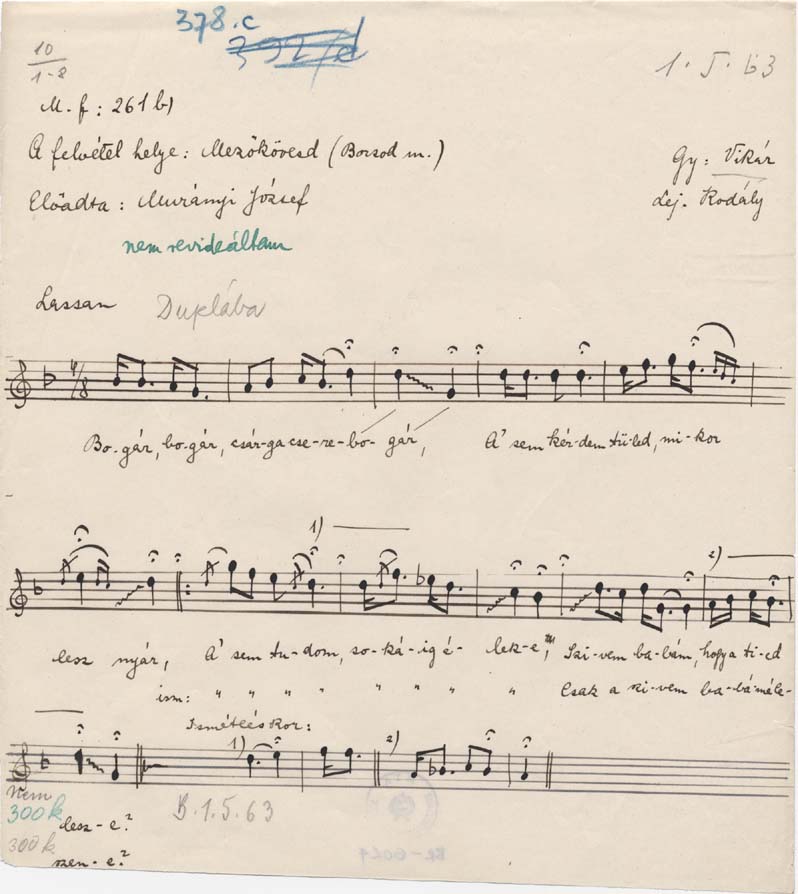 378.c
10
1-8
1. 5. 63
M. f: 261 b)
A felvétel helye: Mezőkövesd (Borsod m.)
Gy: Vikár
Előadta: Murányi József
Lej. Kodály
nem revideáltam
Lassan Duplába
4/8
Bo-gár, bo-gár, csár-ga cse-re-bo-gár, A' sem kér-dem tü-led, mi-kor
1)
2)
lesz nyár, A' sem tu-dom, so-ká-ig é- lek-e, Szi-vem ba-bám, hogy a ti-ed
ism: " " " " " " " " Csak a szi-vem ba-bá-méle-
Ismétléskor:
1) 2)
nem
300 k
B. 1. 5. 63
lesz-e?
300 k.
szen-e?